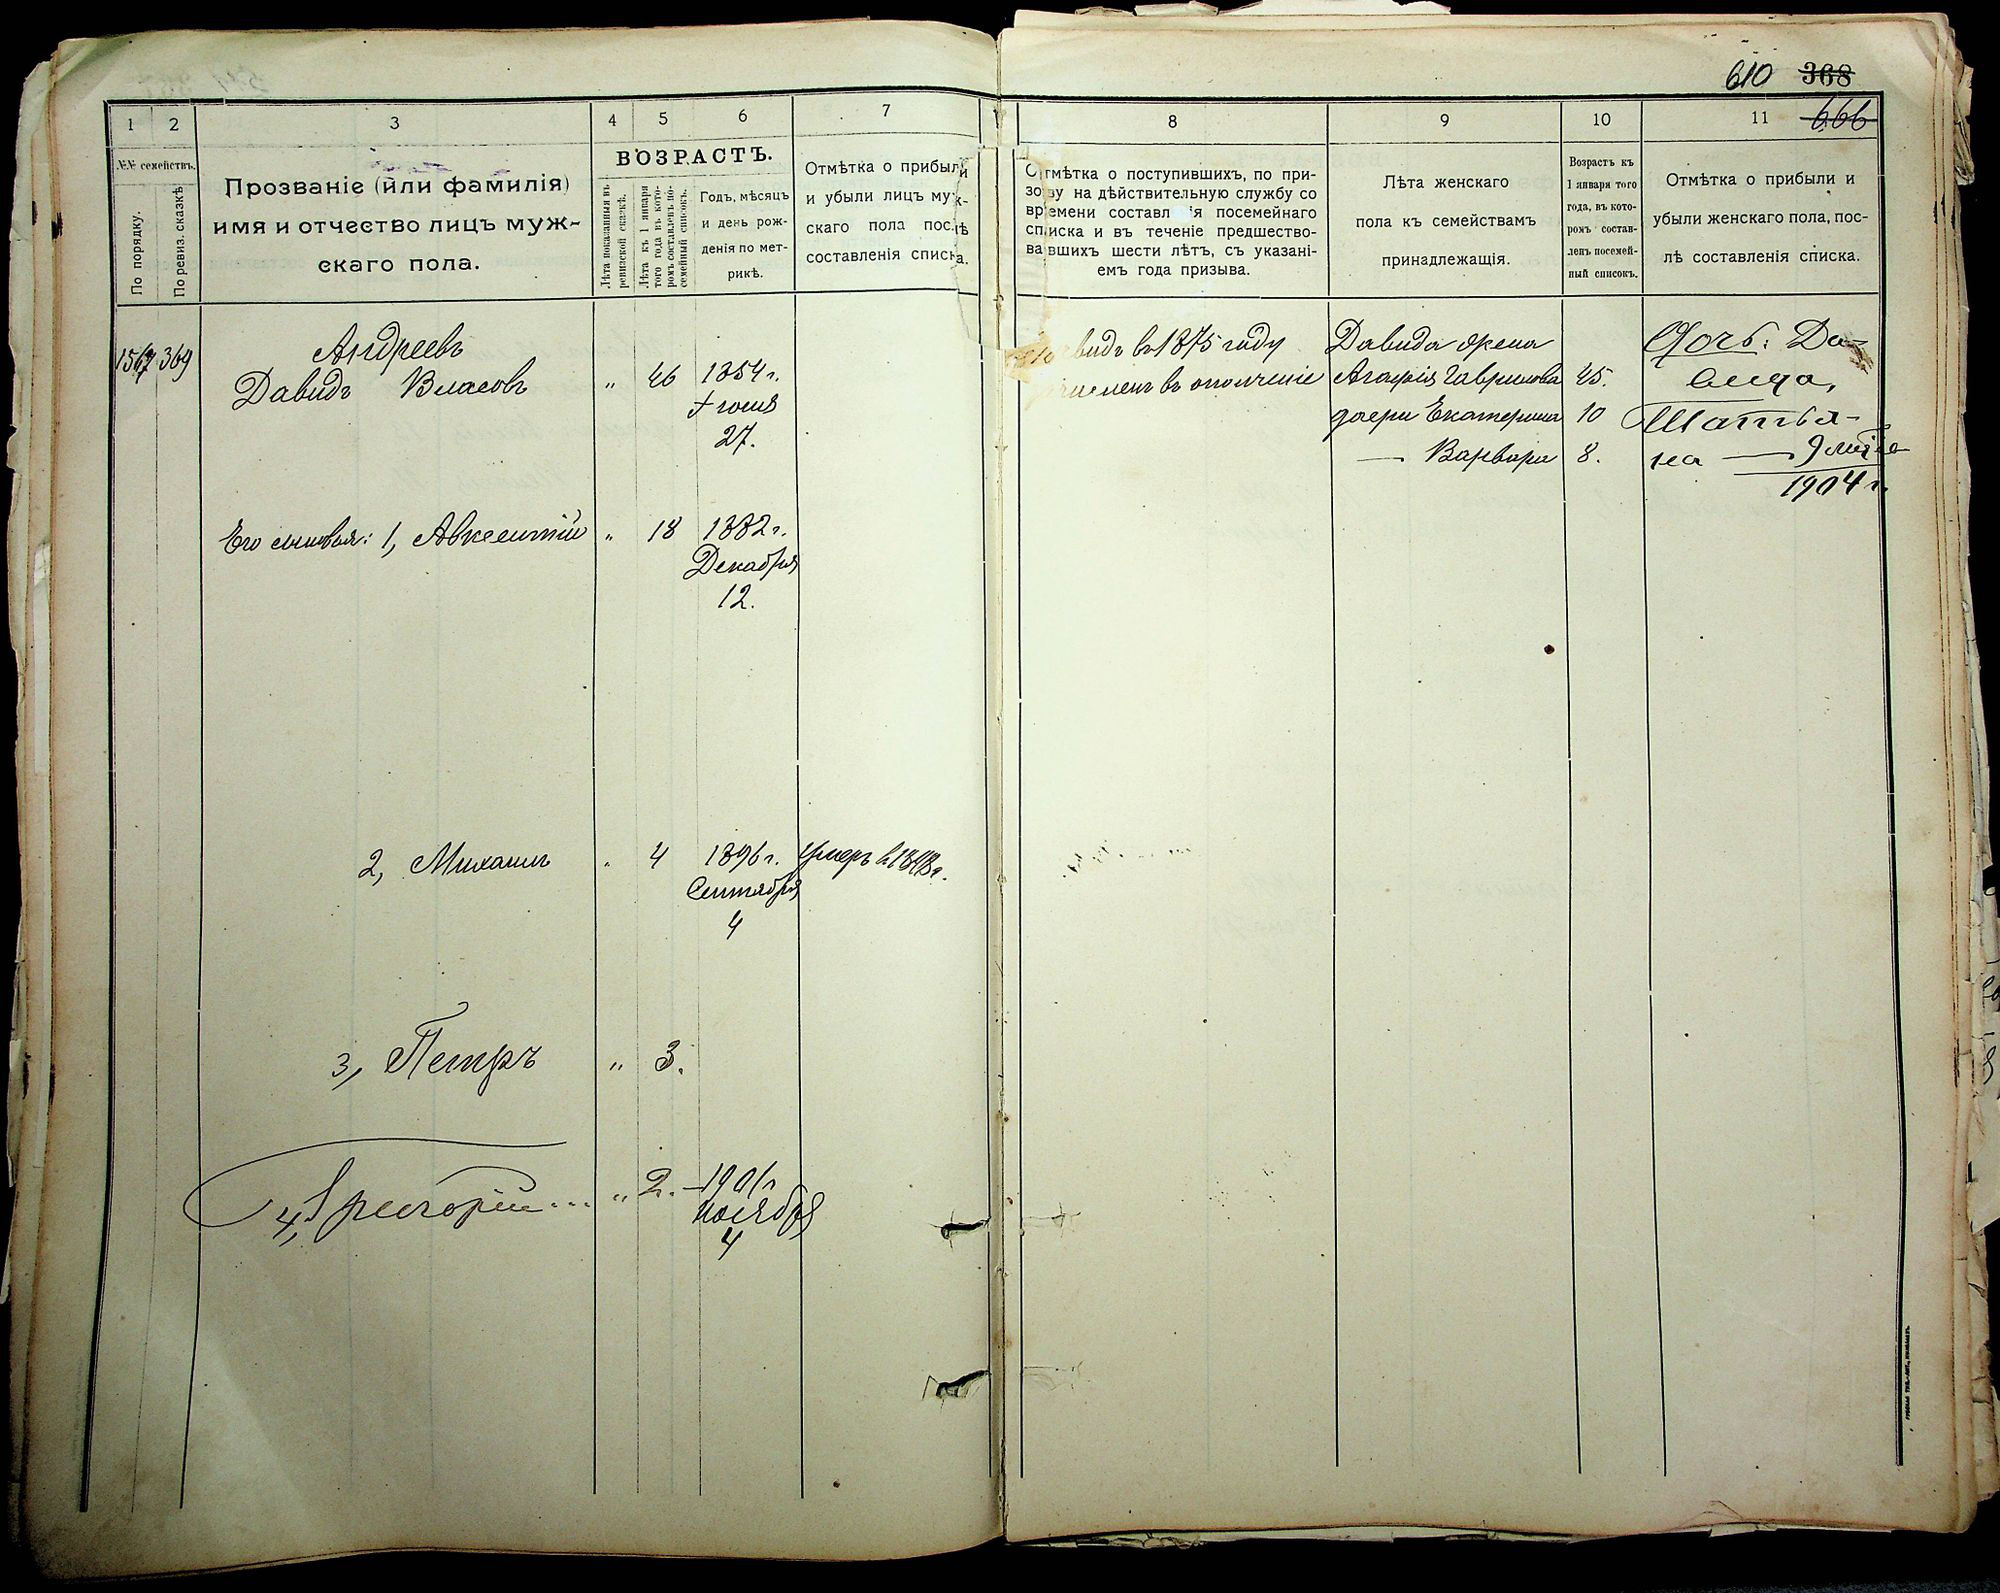 610 368
666
1 2 3 4 5 6 7
№№ семействъ.
По порядку.
По ревиз. сказкѣ
Прозваніе (или фамилія)
имя и отчество лицъ муж-
скаго пола.
ВОЗРАСТЪ.
Лѣта показанныя въ
ревизской сказкѣ.
Лѣта къ 1 января
того года въ кото-
ромъ составленъ по-
семейный списокъ.
Годъ, мѣсяцъ
и день рож-
денія по мет-
рикѣ.
Отмѣтка о прибыли
и убыли лицъ муж-
скаго пола послѣ
составленія списка.
1567 369
Андреевъ
Давидъ Власовъ " 46 1854 г.
27.
Его сыновья: 1, Авксентій " 18 1882 г.
Декабря
12.
2, Михаилъ " 4 1896 г. Умеръ в 1898 г.
Сентября
4
3, Петръ " 3.
4, Григорій " 2. 1901 г
Ноября
4
8 9 10 11
Отмѣтка о поступившихъ, по при-
зову на дѣйствительную службу со
времени составленія посемейнаго
списка и въ теченіе предшество-
вавшихъ шести лѣтъ, съ указані-
емъ года призыва.
Лѣта женскаго
пола къ семействамъ
принадлежащія.
Возрастъ къ
1 января того
года, въ кото-
ромъ состав-
ленъ посемей-
ный списокъ.
Отмѣтка о прибыли и
убыли женскаго пола, пос-
лѣ составленія списка.
Давидъ въ 1875 году
зачисленъ въ ополченіе
Давида жена
Агафія Гаврилова 45.
дочери Екатерина 10
— Варвара 8.
Дочь: Да-
вида,
Татья-
на — 9
1904 г.